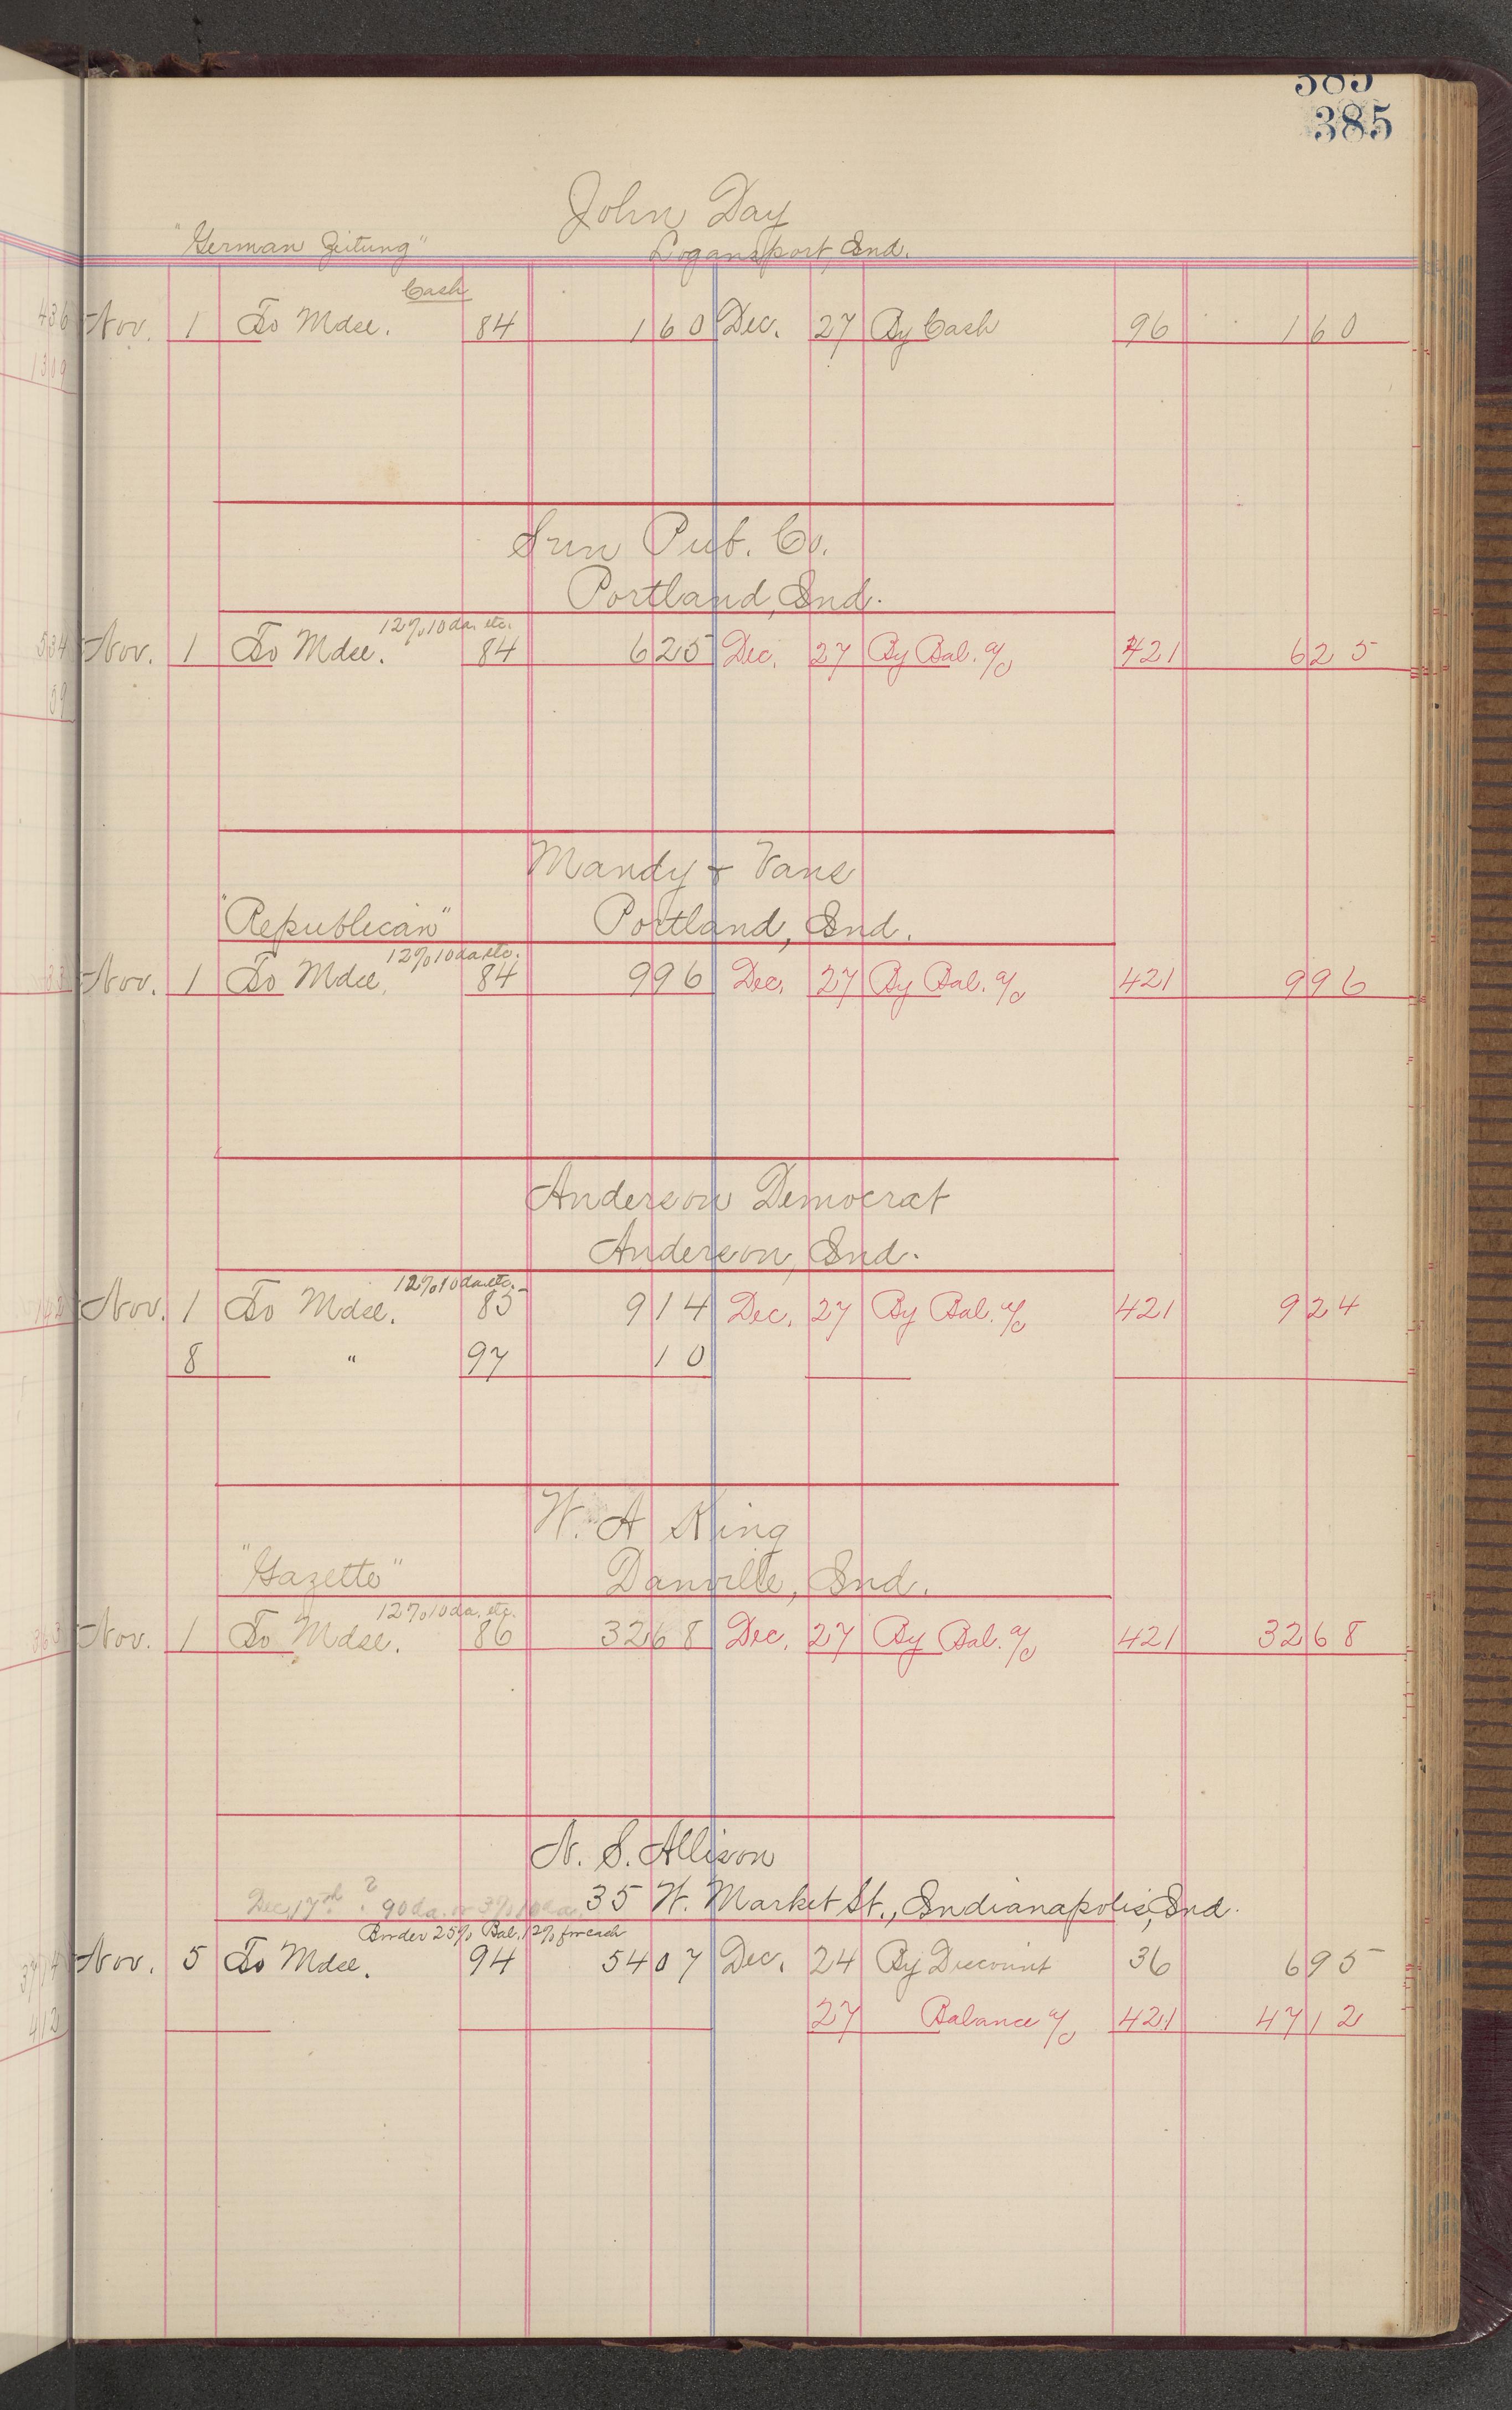 385
385
John Day
"German Zeitung" Logansport, Ind.
Cash
Nov. 1 To Mdse. 84 1 60 Dec. 27 By Cash 96 1 60
Sun Pub. Co.
Portland, Ind.
12% 10 da. etc.
Nov. 1 To Mdse. 84 6 25 Dec. 27 By Bal. a/c 421 6 25
Mandy & Vans
"Republican" Portland, Ind.
12% 10 da. etc.
Nov. 1 To Mdse. 84 9 96 Dec. 27 By Bal. a/c 421 9 96
Anderson Democrat
Anderson, Ind.
12% 10 da. etc.
Nov. 1 To Mdse. 85 9 14 Dec. 27 By Bal. a/c 421 9 24
8 " 97 10
W. A King
"Gazette" Danville, Ind.
12% 10 da. etc.
Nov. 1 To Mdse. 86 32 68 Dec. 27 By Bal. a/c 421 32 68
N. S. Allison
Dec. 17th ? 90 da. or 3% 10 da. 35 W. Market St., Indianapolis, Ind.
Binder 25% Bal. 12% for cash
Nov. 5 To Mdse. 94 54 07 Dec. 24 By Discount 36 6 95
27 Balance a/c 421 47 12